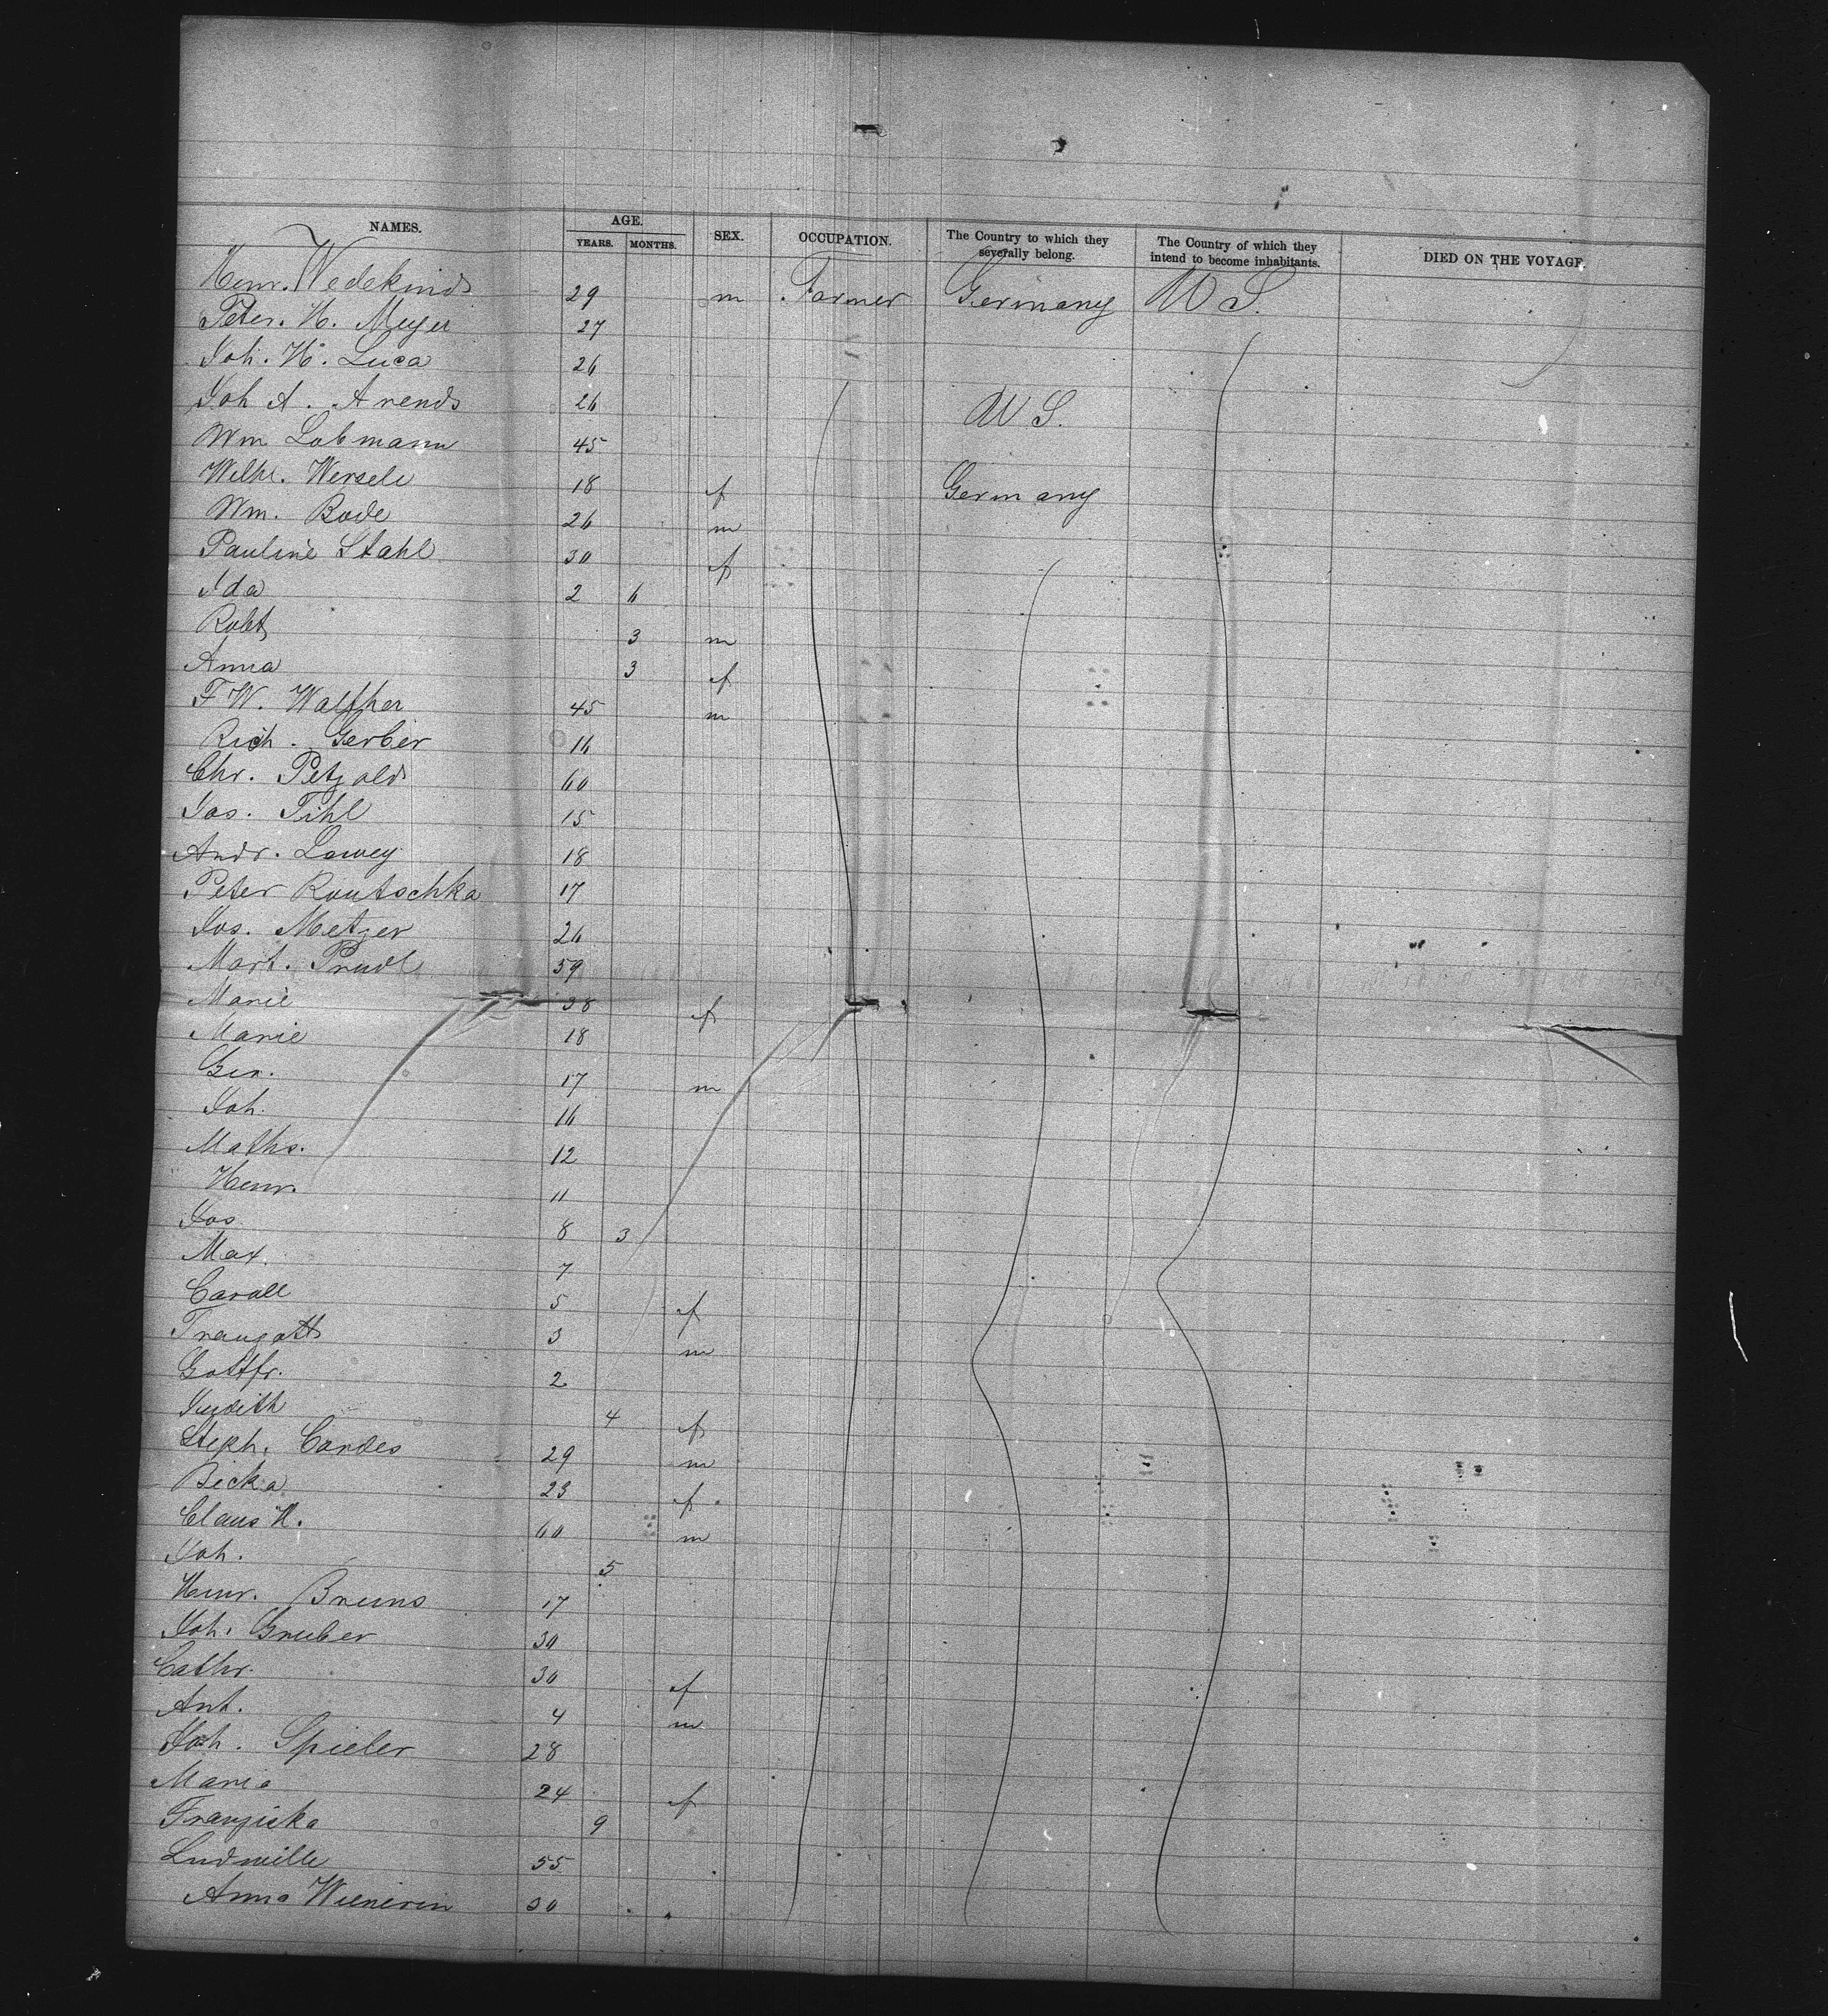 NAMES. AGE. SEX. OCCUPATION. The Country to which they severally belong. The Country of which they intend to become inhabitants. DIED ON THE VOYAGE
YEARS. MONTHS.
Henr. Wedekind 29 m Farmer Germany U S.
Peter. H. Meyer 27
Joh. H. Luca 26
Joh A. Arends 26 U S.
Wm Lobmann 45
Wilh. Wersele 18 f Germany
Wm. Bode 26 m
Pauline Stahl 30 f
Ida 2 6
Robt 3 m
Anna 3 f
F W. Walther 45 m
Rich. Gerber 16
Chr. Petzold 60
Jos. Tihl 15
Andr. Lowey 18
Peter Routschka 17
Jos. Metzer 26
Mart. Prudl 59
Marie 38 f
Marie 18
Geo. 17 m
Joh. 16
Maths. 12
Henr. 11
Jos 8 3
Max. 7
Caroll 5 f
Traugott 3 m
Gottfr. 2
Judith 4 f
Steph. Cordes 29 m
Bicka 23 f
Claus H. 60 m
Joh. 5
Henr. Bruns 17
Joh. Gruber 30
Cathr. 30 f
Ant. 4 m
Joh. Spieler 28
Maria 24 f
Franziska 9
Ludmille 55
Anna Wienerin 30